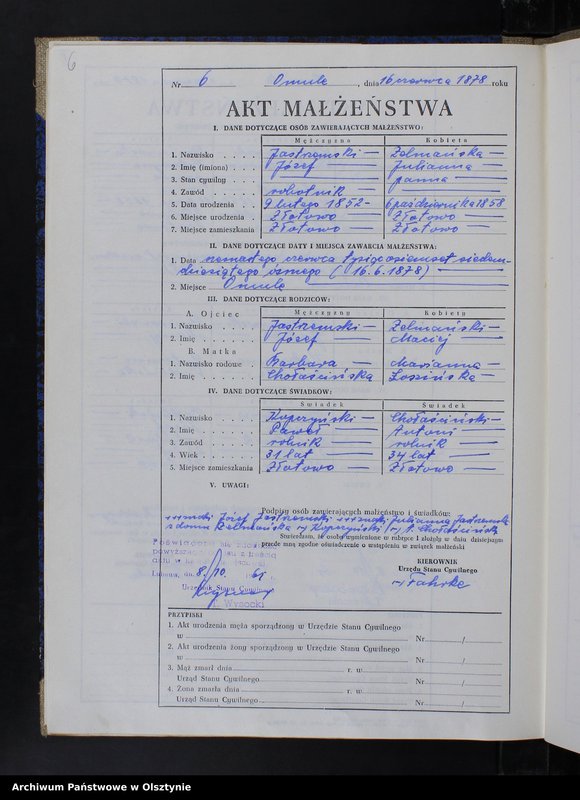 6
Nr 6 Omule, dnia 16 czerwca 1878 roku
AKT MAŁŻEŃSTWA
I. DANE DOTYCZĄCE OSÓB ZAWIERAJĄCYCH MAŁŻEŃSTWO:
Mężczyzna Kobieta
1. Nazwisko Jastrzemski Zelmańska
2. Imię (imiona) Józef Julianna
3. Stan cywilny — panna
4. Zawód robotnik —
5. Data urodzenia 9 lutego 1852 6 października 1858
6. Miejsce urodzenia Złotowo Złotowo
7. Miejsce zamieszkania Złotowo Złotowo
II. DANE DOTYCZĄCE DATY I MIEJSCA ZAWARCIA MAŁŻEŃSTWA:
1. Data czerwca tysiąc osiemset siedem-
dziesiątego ósmego (16.6.1878)
2. Miejsce Omule
III. DANE DOTYCZĄCE RODZICÓW:
A. Ojciec Mężczyzny Kobiety
1. Nazwisko Jastrzemski Zelmański
2. Imię Józef Maciej
B. Matka
1. Nazwisko rodowe Barbara Marianna
2. Imię Chołaścińska Łosińska
IV. DANE DOTYCZĄCE ŚWIADKÓW:
Świadek Świadek
1. Nazwisko Kopczyński Chołaściński
2. Imię Paweł Antoni
3. Zawód rolnik rolnik
4. Wiek 31 lat 34 lat
5. Miejsce zamieszkania Złotowo Złotowo
V. UWAGI:
Podpisy osób zawierających małżeństwo i świadków:
+++znaki Józef Jastrzemski +++znaki Julianna Jastrzemska
z domu Zelmańska Kopczyński A. Chołaściński
Stwierdzam, że osoby wymienione w rubryce I złożyły w dniu dzisiejszym
przede mną zgodne oświadczenie o wstąpieniu w związek małżeński
Poświadcza się zgodność
powyższego z treścią
aktu w
Lubawa, dn. 8/10. 1965
Urzędnik Stanu Cywilnego
Wysocki
KIEROWNIK
Urzędu Stanu Cywilnego
Fahrke
PRZYPISKI
1. Akt urodzenia męża sporządzony w Urzędzie Stanu Cywilnego
w Nr /
2. Akt urodzenia żony sporządzony w Urzędzie Stanu Cywilnego
w Nr /
3. Mąż zmarł dnia r. w
Urząd Stanu Cywilnego Nr /
4. Żona zmarła dnia r. w
Urząd Stanu Cywilnego Nr /
Archiwum Państwowe w Olsztynie